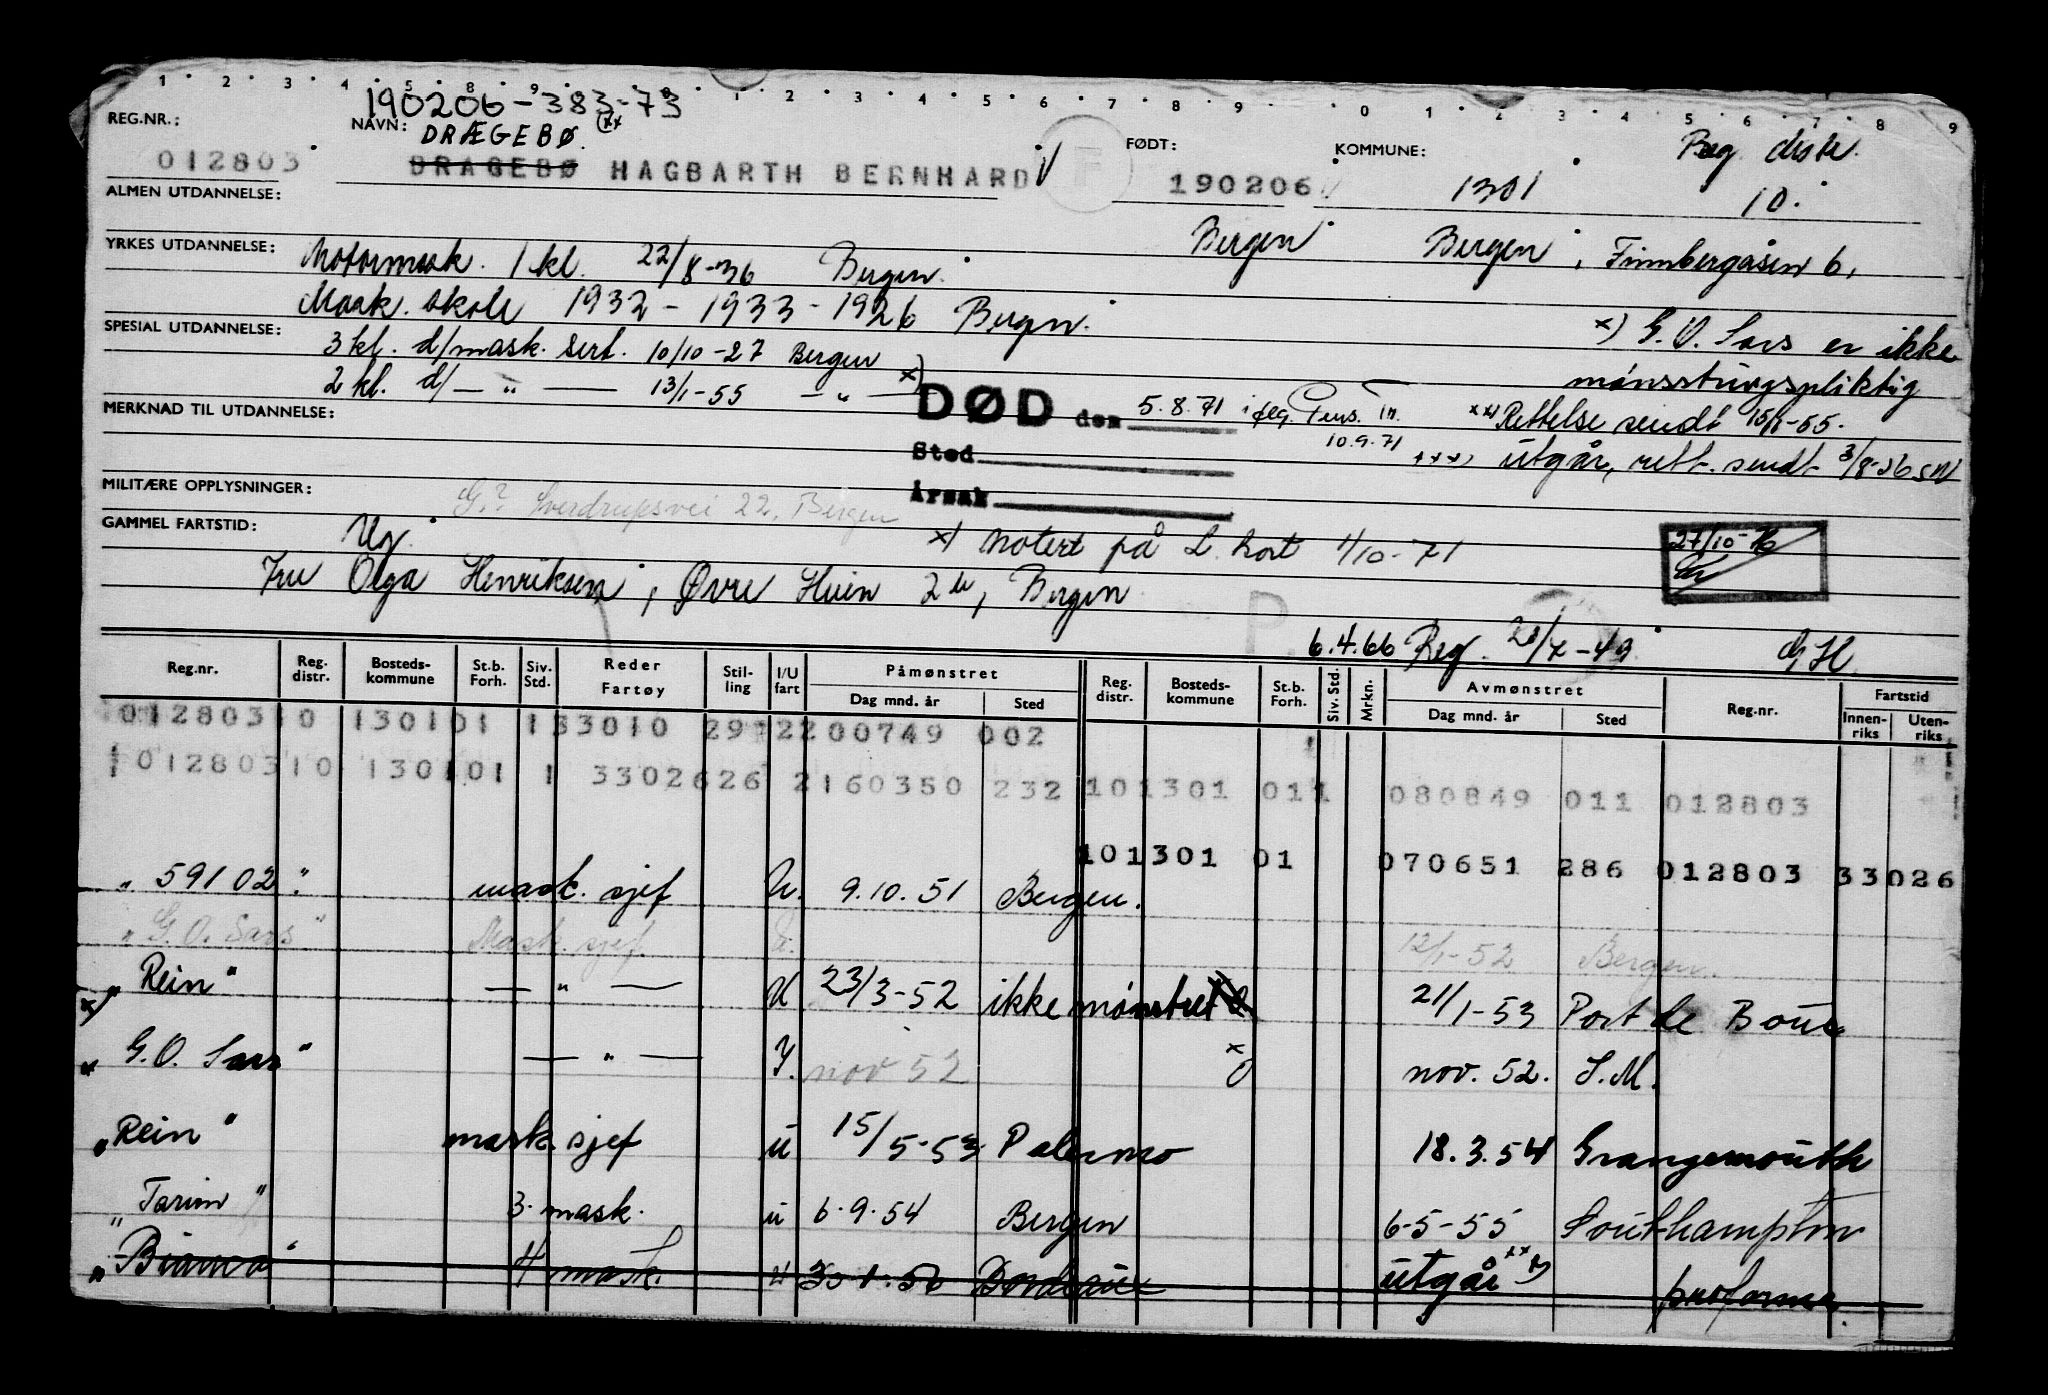 1 2 3 4 5 8 9 0 1 2 3 4 5 6 7 8 9 0 1 2 3 4 5 6 7 8 9
190206-383-73
REG.NR.: NAVN: DRÆGEBØ. xx FØDT: KOMMUNE: Reg. distr.
012803 DRAGEBØ HAGBARTH BERNHARD F 190206 1301 10.
ALMEN UTDANNELSE:
Bergen Bergen, Finnbergåsen 6,
YRKES UTDANNELSE: Motormask. 1 kl. 22/8-36 Bergen.
Mask. skole 1932 - 1933 - 1926 Bergen. x) G.O. Sars er ikke
SPESIAL UTDANNELSE: 3 kl. d/mask. sert. 10/10-27 Bergen mønsstringspliktig
2 kl. d/ — " — 13/1-55 — " — x)
MERKNAD TIL UTDANNELSE: DØD den 5.8.71 iflg. Pens. Tr. xx) Rettelse sendt 15/1-55.
10.9.71
Sted xxx) utgår, rett. sendt 3/8-56 SN
MILITÆRE OPPLYSNINGER: G.? Sverdrupsvei 22, Bergen Årsak
GAMMEL FARTSTID: Ug. x) Notert på L. kort 1/10-71 27/10-76
Fru Olga Henriksen, Øvre Hvien 2 b, Bergen
P. 6.4.66 Reg. 20/7-49 GH.
Reg.nr. Reg. distr. Bosteds-kommune St.b. Forh. Siv. Std. Reder Fartøy Stil-ling I/U fart Påmønstret Dag mnd. år Sted Reg. distr. Bosteds-kommune St.b. Forh. Siv. Std. Mrkn. Avmønstret Dag mnd. år Sted Reg.nr. Fartstid Innen-riks Uten-riks
012803 10 1301 01 1 33010 29 2 200749 002
012803 10 1301 01 1 33026 26 2 160350 232 10 1301 01 1 080849 011 012803
10 1301 01 070651 286 012803 33026
" 59102 " mask. sjef U. 9.10.51 Bergen.
" G.O. Sars " Mask. sjef. 12/1-52 Bergen.
" Rein " — " — U 23/3-52 ikke mønstret 21/1-53 Port de Bouc
x " G.O. Sars " — " — I. nov 52 x nov. 52. S.M.
" Rein " mask. sjef u 15/5-53 Palermo 18.3.54 Grangemouth
" Tarim " 3. mask. u 6.9.54 Bergen 6-5-55 Southampton
" Biarna " 4 mask. u 30.1.56 Bordeaux utgår xxx) proforma.